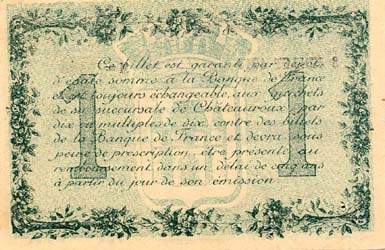 Ce billet est garanti par dépôt
d'égale somme à la Banque de France
et est toujours échangeable, aux guichets
de sa succursale de Châteauroux par
dix ou multiples de dix, contre des billets
de la Banque de France et devra, sous
peine de prescription, être présenté au
remboursement dans un délai de cinq ans
à partir du jour de son émission
1 1